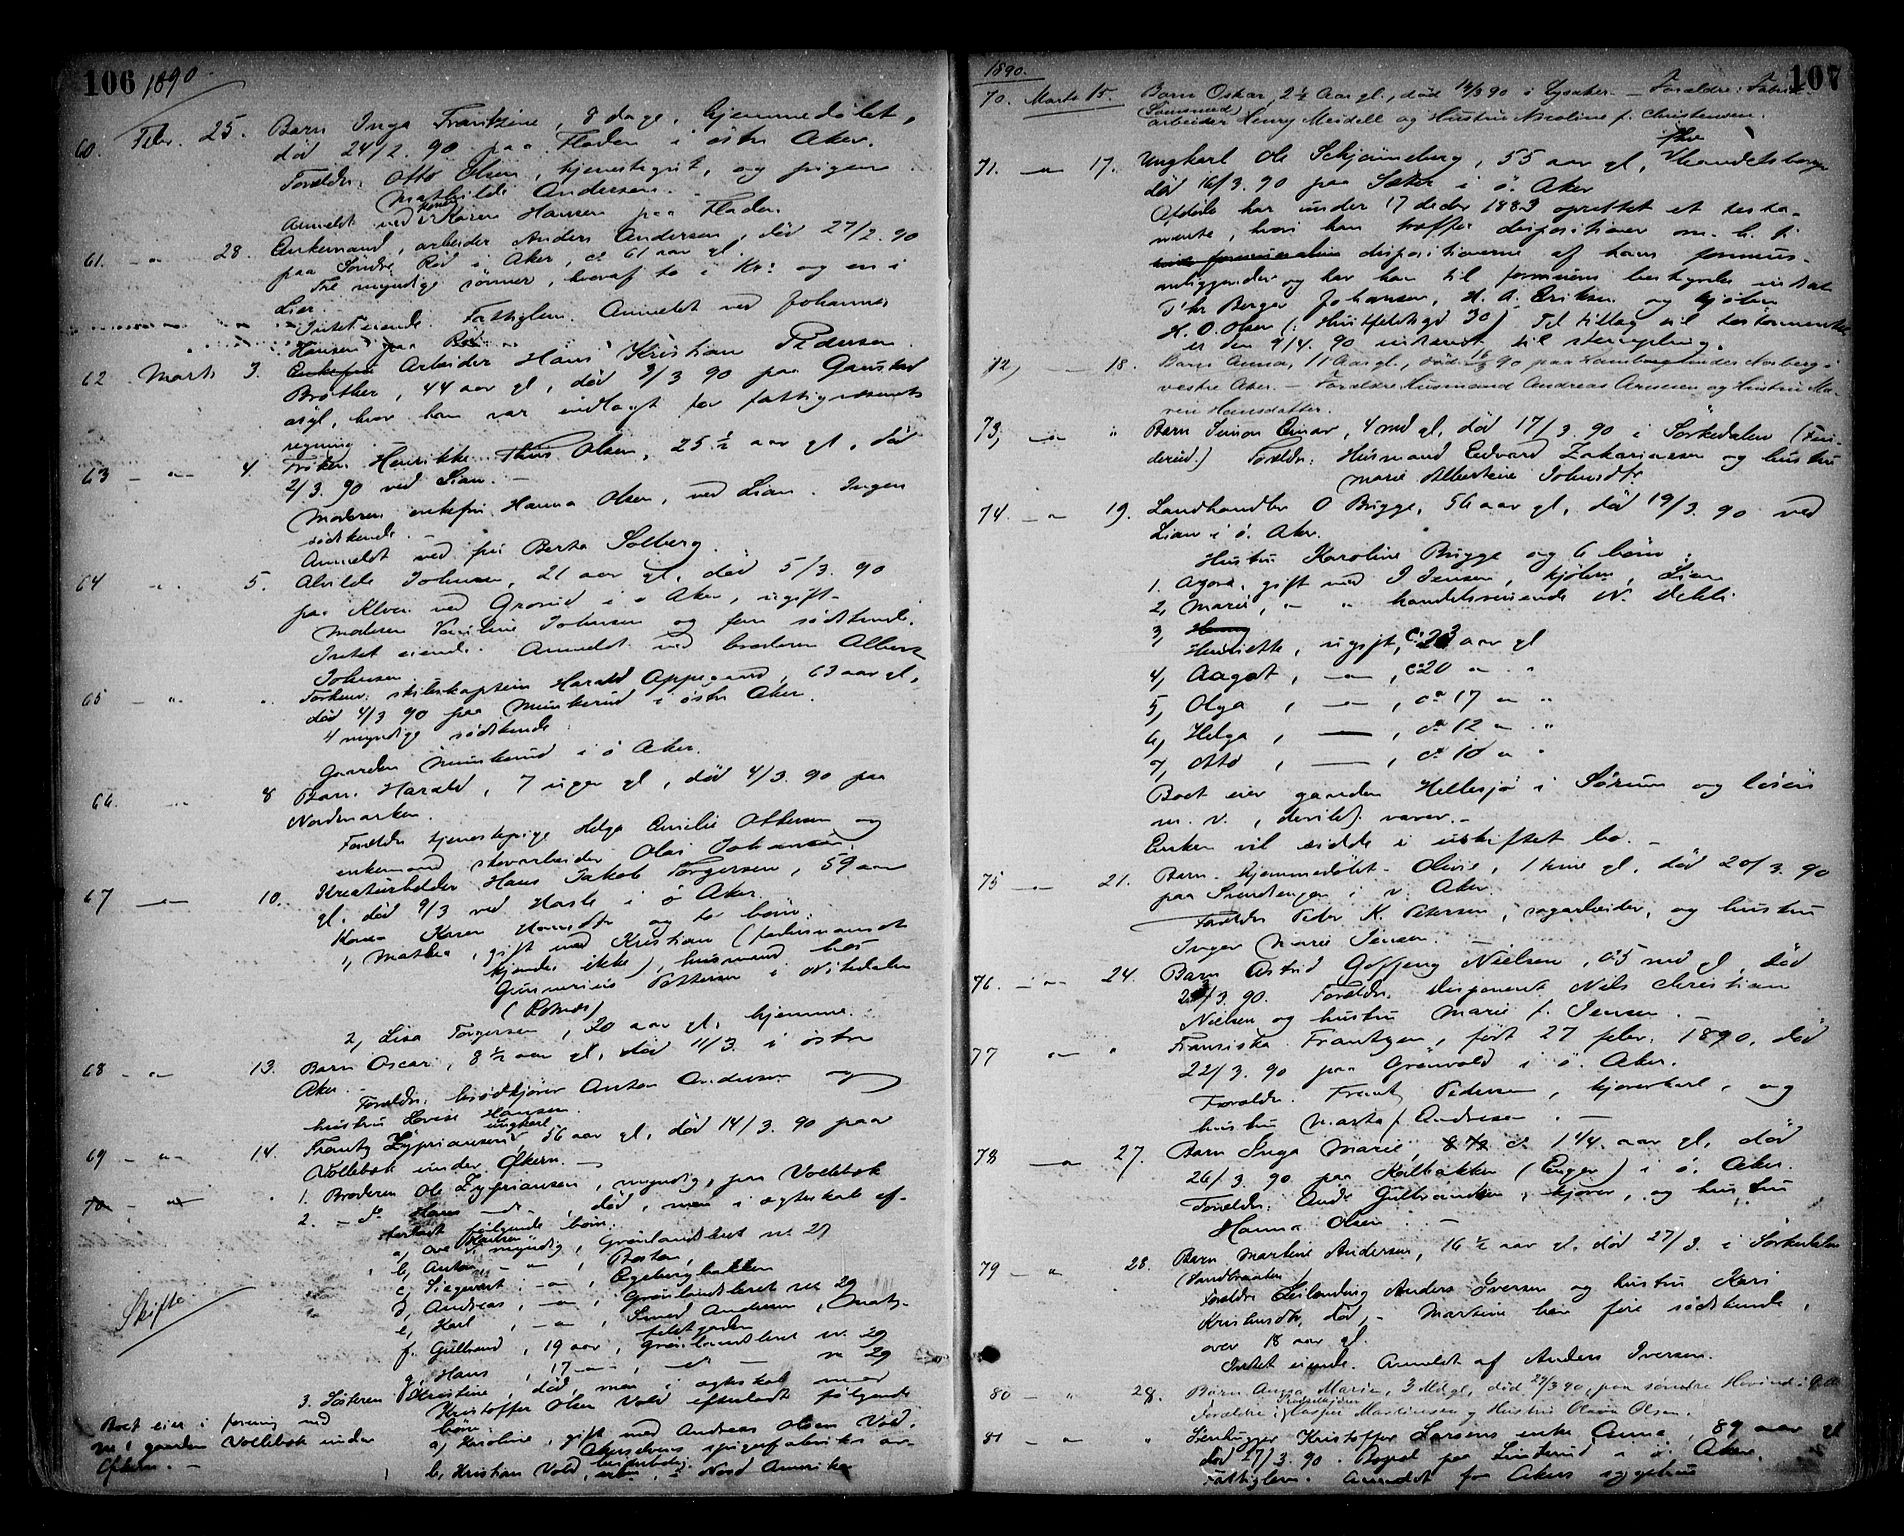 106 1890
60. Febr. 25. Barn Inga Frantzine, 8 dage, hjemmedøbt,
død 24/2. 90 paa Fladen i østre Aker.
Forældre: Otto Olsen, tjenestegut, og pigen
Mathilde Andersen.
Anmeldt ved Karen Hansen paa Fladen.
61. - " - 28. Enkemand, arbeider Anders Andersen, død 27/2. 90
paa Søndre Rød i Aker, ca 61 aar gl.
Tre myndige sønner, hvoraf to i Kr: og en i
Lier.
Intet eiende. Fattiglem. Anmeldt ved Johannes
Hansen paa Rød
62 Marts 3. Enkefru Arbeider Hans Kristian Pedersen
Bråthen, 44 aar gl, død 2/3 90 paa Gaustad
asyl, hvor han var indlagt for fattigvæsenets
regning.
63 - " - 4 Frøken Henrikke Thus Olsen, 25 ½ aar gl, død
2/3. 90 ved Lian. -
Moderen enkefru Hanna Olsen, ved Lian. Ingen
sødskende. -
Anmeldt ved fru Berta Solberg.
64 - " - 5. Alvilde Johnsen, 21 aar gl, død 5/3. 90
paa Alven ved Grorud i ø Aker, ugift.
Moderen Johnsen og fem sødskende.
Intet eiende. Anmeldt ved broderen Albert
Johnsen
65 - " - " Forhenv. skibskaptein Harald Oppegaard, 63 aar gl,
død 4/3 90 paa Munkerud i østre Aker.
4 myndige sødskende.
Gaarden Munkerud i ø Aker.
66. - " - 8 Barn Harald, 7 uger gl, død 4/3. 90 paa
Nordmarken.
Forældre tjenestepige Helga Emilie Ottersen og
enkemand skovarbeider Olai Johansen.
67 - " - 10. Kreaturhandler Hans Jakob Torgersen, 59 aar
gl. død 9/3 ved Hasle i ø Aker.
Kone Karen Hansdtr og to børn:
1, Mathea, gift med Kristian (farhusmandens
kjendes ikke), husmand hos
Gunnerius Pettersen i Nitedalen
2, Lisa Torgersen, 20 aar gl, hjemme.
68 - " - 13. Barn Oscar, 8 ½ aar gl, død 11/3. i østre
Aker.
Forældre: brødkjører Anton Andersen og
hustru Lovise Hansen.
69 - " - 14. Frantz Zyprianssen ungkarl, 56 aar gl, død 14/3. 90 paa
Vollebæk under Økern. -
70 - " - " 1. Broderen Ole Zypriansen, myndig, paa Vollebæk
2. - do Hans - do -, død, men i ægteskab ef-
terladt følgende børn:
a, Ove Hansen, myndig, Grønlandsleret no 27
b, Anton, - " - , Boston,
c, Sigvart, - " - , Egebergbakken
d, Andreas, - " - , Grønlandsleret no 29
e, Karl, - " - , Smed Andersen, Mats-
feldtgaden
f, Gulbrand, 19 aar, Grønlandsleret no. 29
g, Hans, 17 - " - , - do - no 29
3. Søsteren Kristine, død, men i ægteskab med
Kristoffer Olsen Vold efterladt følgende
børn:
a, Karoline, gift med Andreas Olsen Vold,
Akerselvens spigerfabrikks ar-
beiderbolig.
b, Kristian Vold, i Nord Amerika
Skifte
Boet eier i forening med
no 1 gaarden Vollebæk under
Økern. -
1890. 107
70. Marts 15. Barn Oskar, 2 ½ Aar gl., død 14/3 90 i Lysaker. - Forældre: Fabrik-
arbeider Henry Meidell og Hustru Nicoline f. Christensen.
71. - " - 17. Ungkarl Ole Schjønneberg, 55 aar gl, Handelsborger
død 16/3. 90 paa Sæter i ø. Aker
Afdøde har under 17 decbr 1883 oprettet et testa-
mente, hvori han træffer dispositioner m. h. t.
dispositionerne af hans formues-
anliggender og har han til formuens bestyrelse indsat
Thr Berger Johansen, H. A. Eriksen og kjøbm
H. O. Olsen (: Huitfeldtsgd 30) Et tillæg til testamentet
er den 9/4. 90 indsendt til stempling.
72, - " - 18. Barn Anna, 11 Aar gl., død 16/3 90 paa Hambergunder Norberg i
vestre Aker. - Forældre Husmand Andreas Arnesen og Hustru Ma-
ren Hansdatter.
73, - " - " Barn Simon Einar, 4 md gl, død 17/3. 90 i Sørkedalen (Fin-
derud.) Forældre: Husmand Edvard Zakariassen og hustru
Marie Albertine Johnsdtr.
74. - " - 19. Landhandler O Brygge, 56 aar gl, død 19/3. 90 ved
Lian i ø. Aker.
Hustru Karoline Brygge og 6 børn:
1. Agora, gift med J Jensen, kjøbm, Lian
2, Marie, - " - " handelsreisende N. Dehli
3, Henny
Henriette, ugift, ca 23 aar gl
4, Aagot, - " - , ca 20 " - "
5, Olga, - " - , ca 17 " - "
6, Helga, - , ca 12 " - "
7, Otto, - , ca 10 " - "
Boet eier gaarden Hellesjø i Sørum og løsøre
m. v., deribl. varer. -
Enken vil sidde i uskiftet bo. -
75 - " - 21. Barn. Hjemmedøbt. Olivie, 1 time gl, død 20/3. 90
paa Svendsengen i v. Aker
Forældre Peder K. Petersen, sagarbeider, og hustru
Inger Marie Jensen. -
76. - " - 24. Barn Astrid Goffeng Nielsen, 0.5 md gl, død
23/3. 90. Forældre: disponent Nils Christian
Nielsen og hustru Marie f. Jensen. -
77 - " - " Franziska Frantzen, født 27 febr. 1890, død
22/3. 90 paa Grønvold i ø. Aker.
Forældre. Frantz Pedersen, kjørerkarl, og
hustru Marta f Andresen. -
78 - " - 27. Barn Inga Marie, ca 1 ¼. aar gl, død
26/3. 90 paa Kalbakken (Enger) i ø. Aker.
Forældre: Gulbrandsen, kjører, og hustru
Hanna Olsen. -
79 - " - 28. Barn Martine Andersen, 16 ½ aar gl, død 27/3. i Sørkedalen
(Sandbraaten)
Forældre Anders Iversen og hustru Kari
Kristiansdtr, død, - Martine har fire sødskende,
over 18 aar gl.
Intet eiende. Anmeldt af Anders Iversen.
80 - " - 28. Barn Anna Marie, 3 Md gl., død 27/3 90, paa søndre Hovind i Ø. A.
Forældre: Kasper Martinsen og Hustru Olava Olsen.
81 - " - " Stenhugger Kristoffer Larsens enke Anna, 89 aar gl
død 27/3. 90. Bopæl paa Linderud i ø. Aker.
Fattiglem. Anmeldt fra Akers sygehus